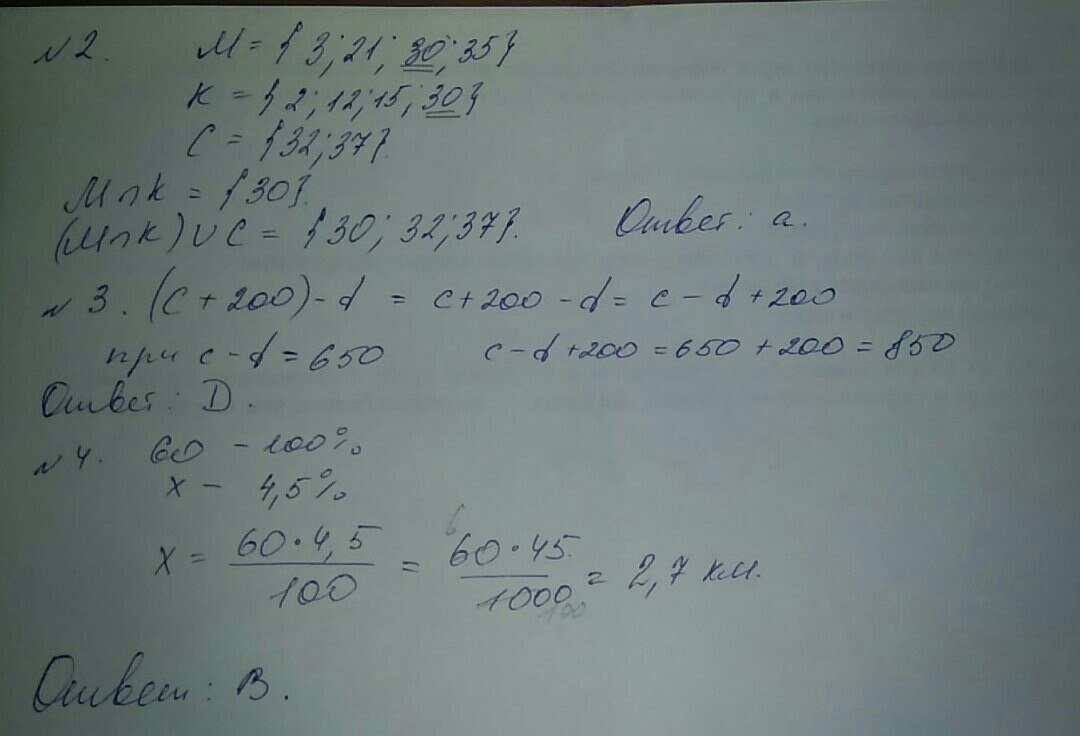 №2. М = {3; 21; 30; 35}
К = {2; 12; 15; 30}
С = {32; 37}.
М∩К = {30}.
(М∩К)∪С = {30; 32; 37}. Ответ: а.
№3. (с + 200) - d = с + 200 - d = с - d + 200
при с - d = 650 с - d + 200 = 650 + 200 = 850
Ответ: D.
№4. 60 - 100%
х - 4,5%
х = 60·4,5/100 = 60·45/1000 = 2,7 км.
6
100
Ответ: В.